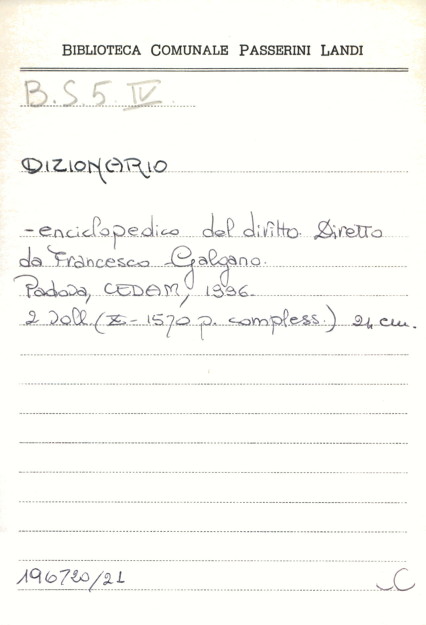 BIBLIOTECA COMUNALE PASSERINI LANDI
B.S. 5. IV
DIZIONARIO
-enciclopedico del diritto. Diretto
da Francesco Galgano.
Padova, CEDAM, 1996.
2 voll. (X-1570 p. compless.) 24 cm.
196720/21